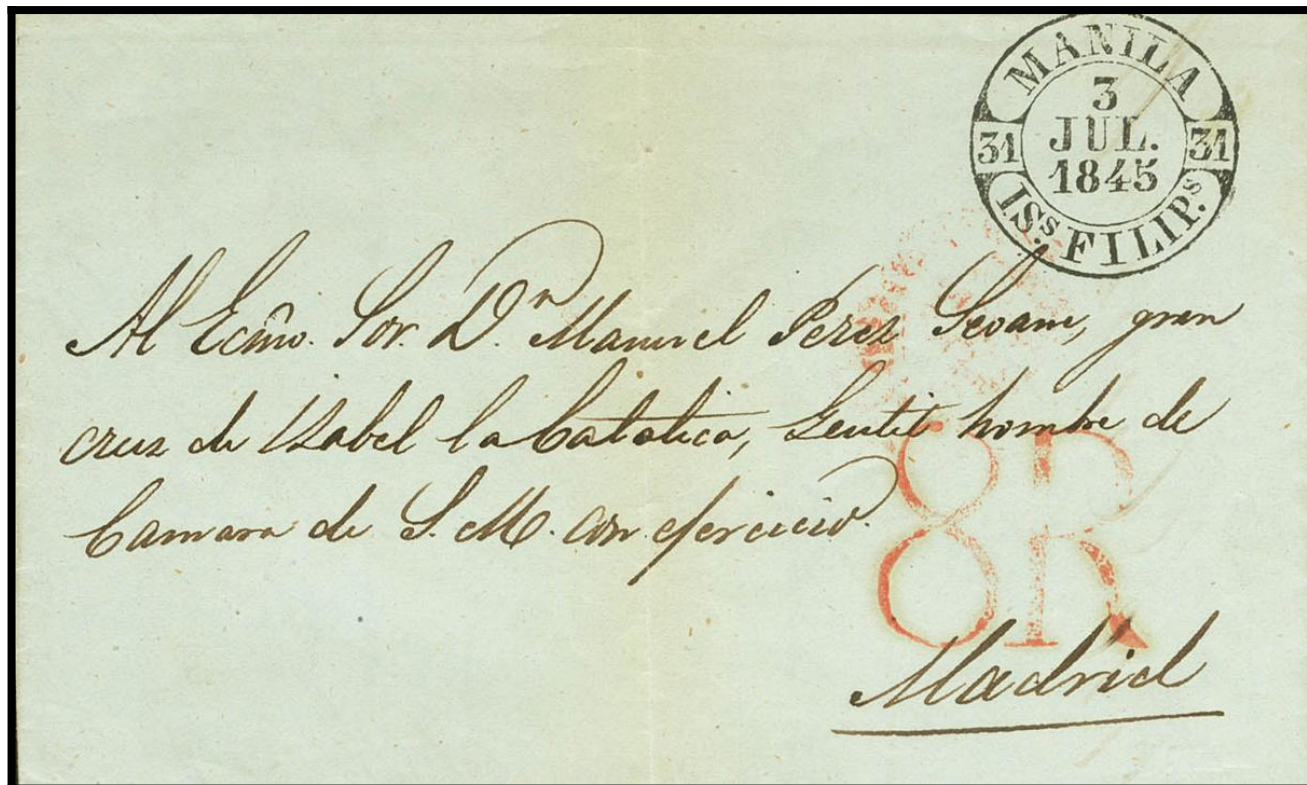 MANILA
3
JUL.
1845
31 31
IS.s FILIP.s
Al Ecmo. Sor. D.n Manuel Perez Seoane, gran
cruz de Isabel la Catolica, Gentil hombre de
Camara de S. M. con ejercicio.
8R
Madrid